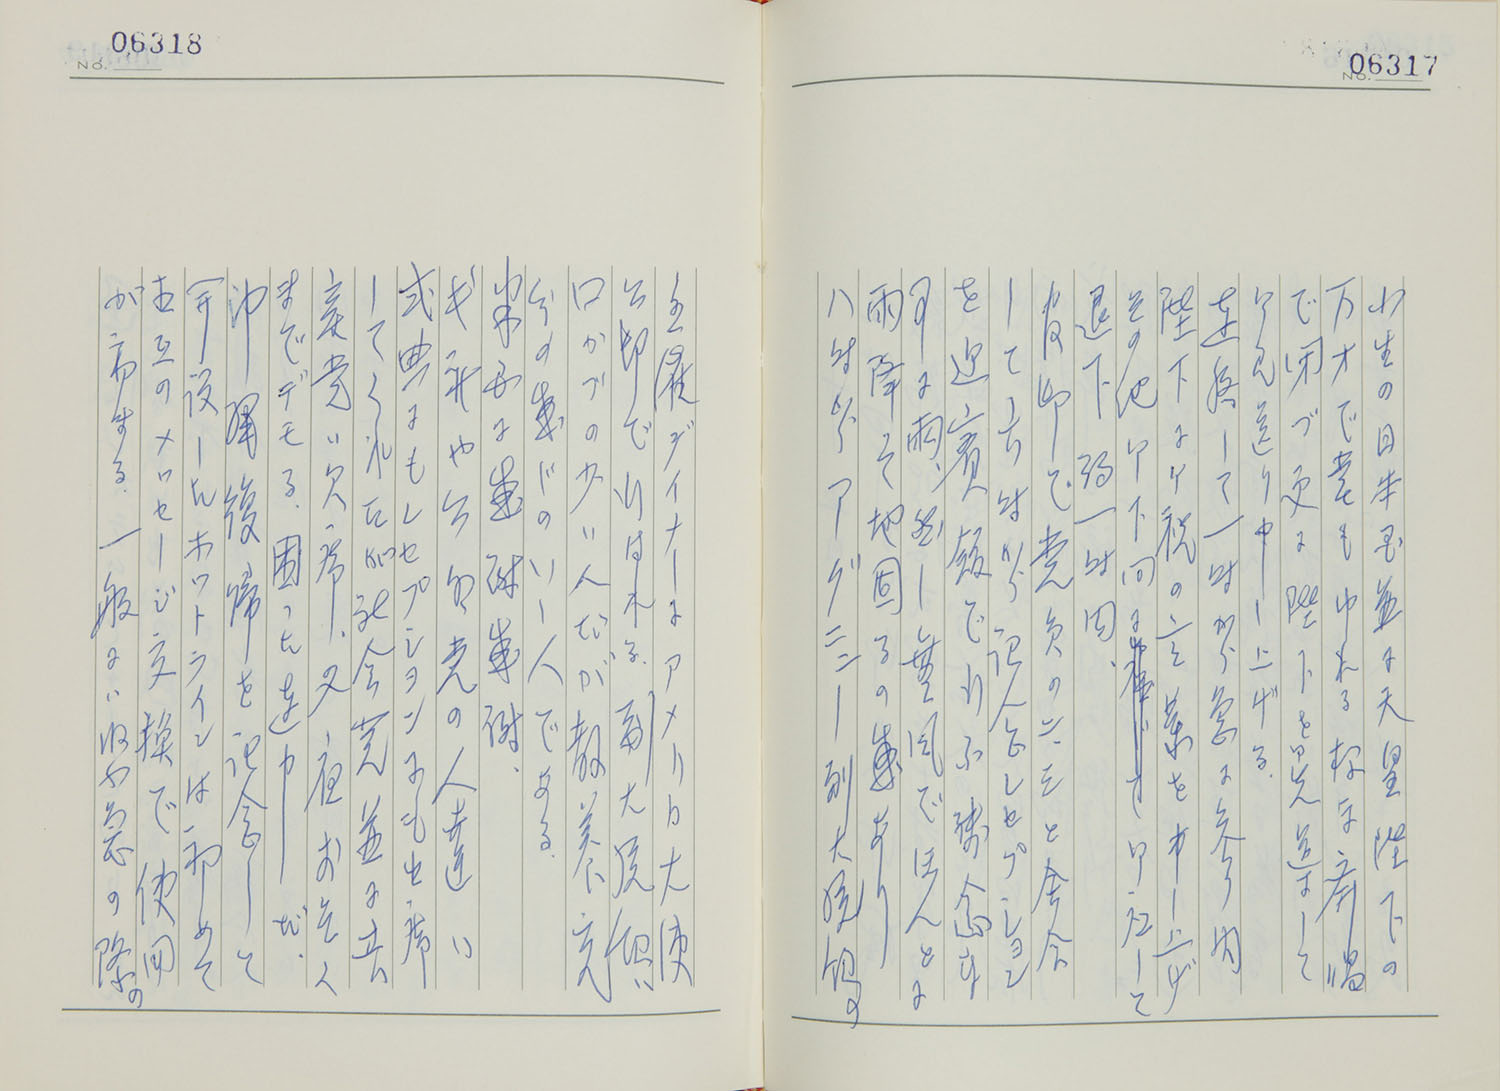 06317
No.
小生の日本国並に天皇陛下の
万才で堂もわれる程に斉唱
で閉づ 更に陛下を先導して
御見送り申し上げる.
連絡して一時から 参内
陛下より祝の言葉を 申し上げ
その他御下問に して
退下 約一時間.
官邸で党員の二、三と会合
して六時から記念レセプション
を迎賓館で行ふ 残念な
事に雨、然し無風でほんとに
雨降って地固るの感あり
八時からアグニュー副大統領の
06318
No.
主催ディナーはアメリカ大使
公邸で行はれる. 副大統領は
口かずの少い人だが教養
分の感じのいゝ人である.
米国に感謝感謝.
や公明党の人達は
式典にもレセプションにも出席
してくれたが社会党並に共
産党は欠席、又夜おそく
までデモる. 困った連中だ.
沖縄復帰を記念して
開設したホットラインは初めて
相互のメッセージ交換で使用
が初まる. 一般には緊急の際の